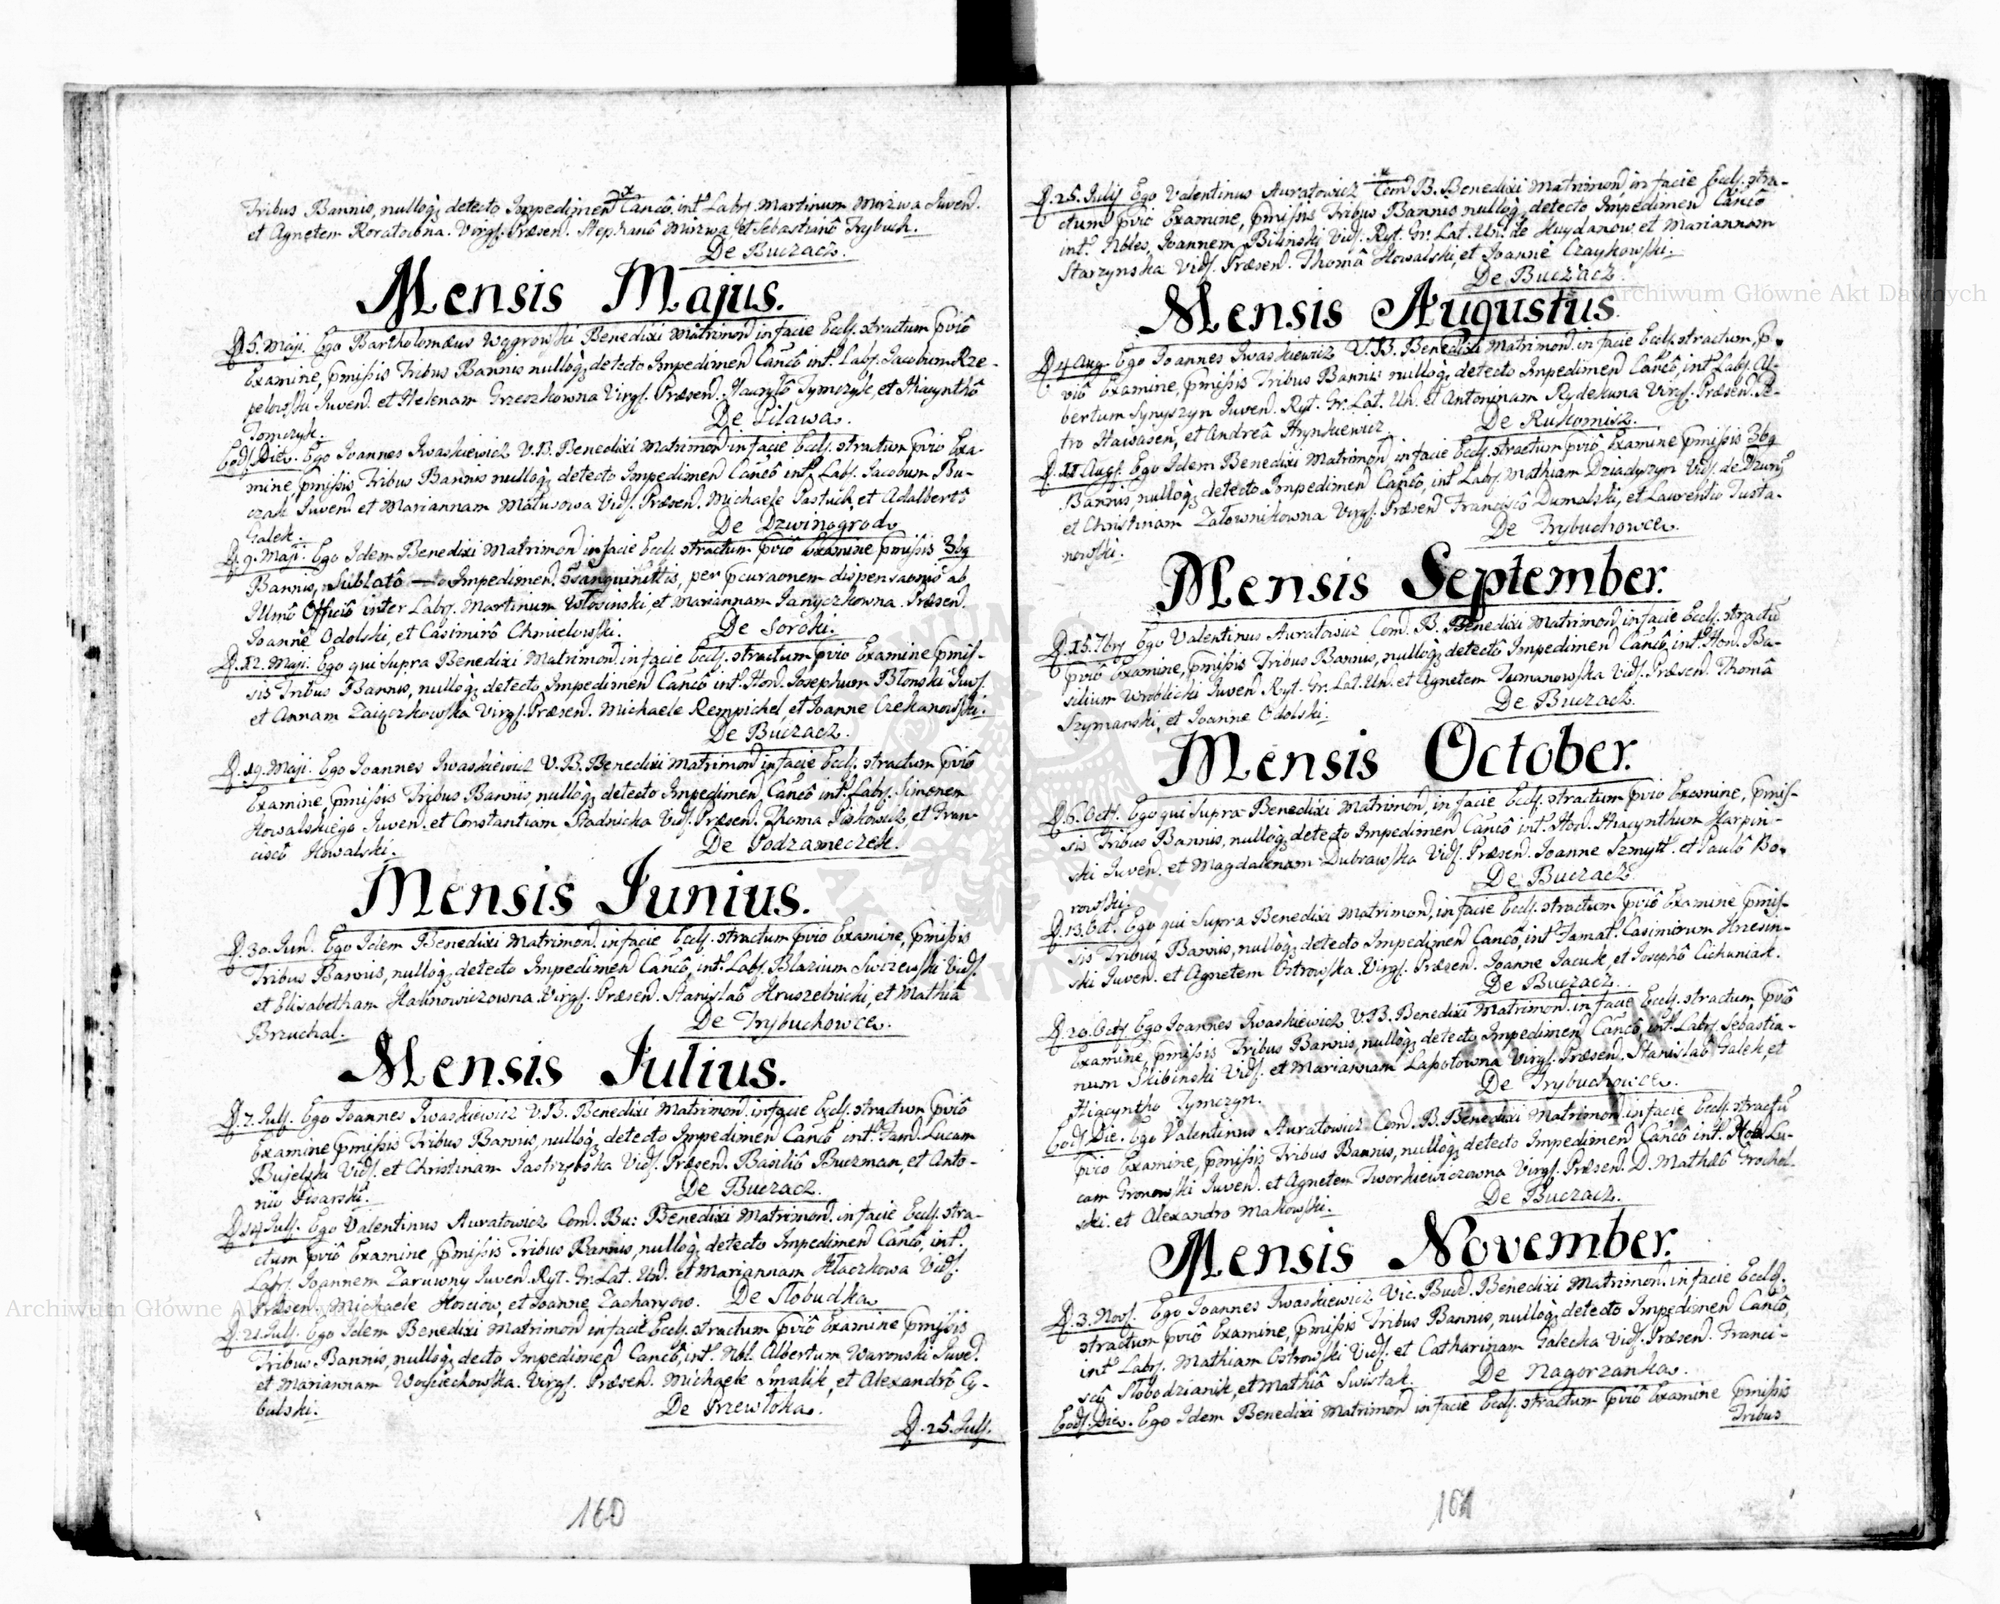 Tribus Bannis, nulloq; detecto Impedimen Canco, int. Labs. Martinum Mirzwa Juven.
et Agnetem Roratowna. Virg. Præsen. Stephano Mirzwa, et Sebastiano Trybuch.
De Buczacz.
Mensis Majus.
D. 5. Maji. Ego Bartholomæus Węgrowski Benedixi Matrimon in facie Eccls. stractum pvio
Examine, pmissis Tribus Bannis nulloq; detecto Impedimen Canco int. Labs. Jacobum Rze-
pelowski Juven. et Helenam Grzeszkowna Virg. Præsen. Wawrzyō Tymczyk, et Hiacyntho
Tomczyk.
De Pilawa.
Eod. Die. Ego Joannes Jwaskiewicz V.B. Benedixi Matrimon in facie Eccls. stractum pvio Exa-
mine pmissis Tribus Bannis nulloq; detecto Impedimen Canco int. Labs. Jacobum Bu-
czak Juven et Mariannam Matusowa Vid. Præsen. Michaele Pastuch, et Adalberto
Galek.
De Dzwinogrod.
D. 9. Maji. Ego Idem Benedixi Matrimon in facie Eccls stractum pvio Examine pmissis 3bq
Bannis, sublato Impedimen. Osanquinittis, per pcuraonem dispensaonis ab
Illmo Officio inter Labs. Martinum Wlosinski et Mariannam Janyczkowna Præsen.
Joanne Odolski, et Casimiro Chmielowski.
De Soroki.
D. 12. Maji. Ego qui supra Benedixi Matrimon in facie Eccls. stractum pvio Examine pmis-
sis Tribus Bannis, nulloq; detecto Impedimen Canco int. Hon. Josephum Blonski Juv.
et Annam Zaiączkowska Virg. Præsen. Michaele Rempichel et Joanne Czekanowski.
De Buczacz.
D. 19. Maji. Ego Joannes Jwaskiewicz V.B. Benedixi Matrimon in facie Eccls. stractum pvio
Examine, pmissis Tribus Bannis, nulloq; detecto Impedimen Canco int. Labs. Simonem
Kowalskiego Juven. et Constantiam Stadnicka Vid. Præsen. Thoma Piskowicz, et Fran-
cisco Kowalski.
De Podzameczek.
Mensis Junius.
D. 30. Jun. Ego Idem Benedixi Matrimon. in facie Eccls. stractum pvio Examine, pmissis
Tribus Bannis, nulloq; detecto Impedimen Canco, int. Labs. Blasium Swizewski Vid.
et Elisabetham Halinowiczowna Virg. Præsen. Stanislao Hruszelnicki, et Mathia
Brzuchal.
De Trybuchowce.
Mensis Julius.
D. 7. Juls. Ego Joannes Jwaskiewicz V.B. Benedixi Matrimon. in facie Eccls. stractum pvio
Examine pmissis Tribus Bannis, nulloq; detecto Impedimen Canco int. Fam. Lucam
Bujelski Vid. et Christinam Jastrzębska Vid. Præsen. Basilio Buczman, et Anto-
nio Pisarski.
De Buczacz.
D. 14. Juls. Ego Valentinus Auratowicz Com. Bu: Benedixi Matrimon. in facie Eccls. stra-
ctum pvio Examine, pmissis Tribus Bannis, nulloq; detecto Impedimen Canco, int.
Labs. Joannem Zaruwny Juven. Ryt. Gr. Lat. Un. et Mariannam Klaczkowa Vid.
Præsen. Michaele Kosciow, et Joanne Zacharyow. De Slobudka
D. 21. Juls. Ego Idem Benedixi Matrimon in facie Eccls. stractum pvio Examine pmissis
Tribus Bannis, nulloq; decto Impedimen Canco, int. Nbl. Albertum Waronski Juve.
et Mariannam Woyciechowska. Virg. Præsen. Michaele Smalik, et Alexandro Cy-
bulski.
De Przewloka.
D. 25. Juls.
160
D. 25. Julij Ego Valentinus Auratowicz Com B. Benedixi Matrimon in facie Eccls. stra-
ctum pvio Examine, pmissis Tribus Bannis nulloq; detecto Impedimen Canco
int. Nbles. Joannem Bilinski Vid. Ryt. Gr. Lat. Un. de Huydanow, et Mariannam
Starzynska Vid. Præsen. Thoma Kowalski, et Joanne Czaykowski.
De Buczacz.
Mensis Augustus
D. 4 Aug. Ego Joannes Jwaskiewicz V.B. Benedixi Matrimon. in facie Eccls. stractum, p-
vio Examine, pmissis Tribus Bannis nulloq; detecto Impedimen Canco, int. Labs. Al-
bertum Synyszyn Juven. Ryt. Gr. Lat. Un. et Antoninam Rydekuna Virg. Præsen. Pe-
tro Hawasen, et Andrea Hrynkiewicz.
De Rukomisz.
D. 11 Augs. Ego Idem Benedixi Matrimon in facie Eccls. stractum pvio Examine pmissis 3bq
Bannis, nulloq; detecto Impedimen Canco, int Labs. Mathiam Dziadyszyn Vid. de Dzuri
et Christinam Zalownikowna Virg. Præsen Francisco Dumalski, et Laurentio Justa-
nowski.
De Trybuchowce.
Mensis September.
D. 15. 7brs Ego Valentinus Auratowicz Com. B. Benedixi Matrimon. in facie Eccls. stractu
pvio Examine, pmissis Tribus Bannis, nulloq; detecto Impedimen Canco, int. Hon. Ba-
silium Wroblicki Juven Ryt. Gr. Lat. Un. et Agnetem Tumanowska Vid. Præsen. Thoma
Szymanski, et Joanne Odolski.
De Buczacz.
Mensis October.
D. 6. Octs. Ego qui supra Benedixi Matrimon, in facie Eccls. stractum pvio Examine, pmis-
sis Tribus Bannis, nulloq; detecto Impedimen Canco int. Hon. Hiacynthum Karpin-
ski Juven. et Magdalenam Dubrawska Vid. Præsen. Joanne Szmytt. et Paulo Bo-
rowski.
De Buczacz.
D. 13. Oct. Ego qui Supra Benedixi Matrimon, in facie Eccls. stractum pvio Examine pmis-
sis Tribus Bannis, nulloq; detecto Impedimen Canco, int Famat. Casimirum Kniesin-
ski Juven. et Agnetem Ostrowska. Virg. Præsen. Joanne Jacuk, et Josepho Cichuniak.
De Buczacz.
D. 20. Octs Ego Joannes Jwaskiewicz V.B. Benedixi Matrimon. in facie Eccls. stractum, pvio
Examine, pmissis Tribus Bannis, nulloq; detecto Impedimen Canco, int. Labs. Sebastia-
num Skibinski Vid. et Mariannam Lapotowna Virg. Præsen. Stanislao Galek, et
Hiacyntho Tymczyn.
De Trybuchowce.
Eod. Die. Ego Valentinus Auratowicz Com. B. Benedixi Matrimon. in facie Eccls. stractu
pvio Examine, pmissis Tribus Bannis, nulloq; detecto Impedimen Canco int. Nobl. Lu-
cam Gronowski Juven. et Agnetem Tworkiewiczowna Virg. Præsen. D. Mathæo Grochol-
ski. et Alexandro Makowski.
De Buczacz.
Mensis November.
D. 3. Novs. Ego Joannes Jwaskiewicz Vic. Bucz. Benedixi Matrimon. in facie Eccls.
stractum pvio Examine, pmissis Tribus Bannis, nulloq; detecto Impedimen Canco,
int. Labs. Mathiam Ostrowski Vid. et Catharinam Galecka Vid. Præsen. Franci-
sco Slobodzianik, et Mathia Swistak.
De Nagorzanka.
Eod. Die. Ego Idem Benedixi Matrimon in facie Eccls. stractum pvio Examine pmissis
Tribus
161
Archiwum Główne Akt Dawnych